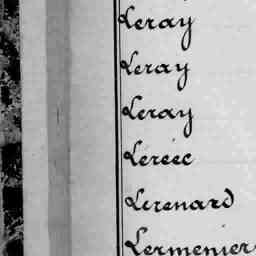 Leray
Leray
Leray
Lereec
Lerenard
Lermenier